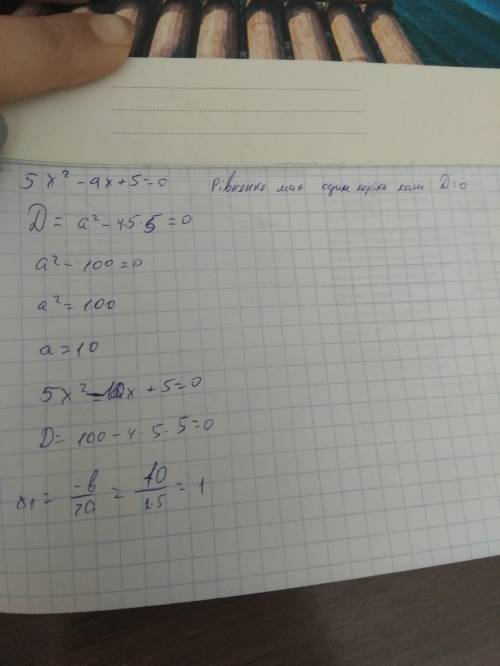 5x² - ax + 5 = 0 Рівняння має один корінь коли D=0
D = a² - 4·5·5 = 0
a² - 100 = 0
a² = 100
a = 10
5x² - 10x + 5 = 0
D = 100 - 4·5·5 = 0
x₁ = -b/2a = 10/2·5 = 1